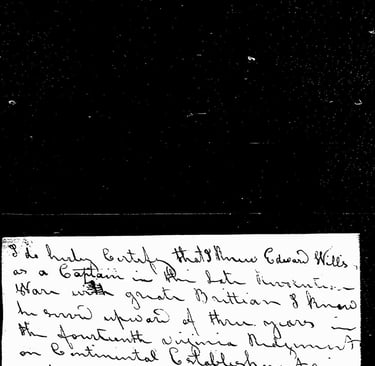 I do herby Certify that I Knew Edward Wills
as a Captain in the Late
Warr with greate Brittian I know
he served upward of three years in
the fourteenth virginia Redgment
on Continental